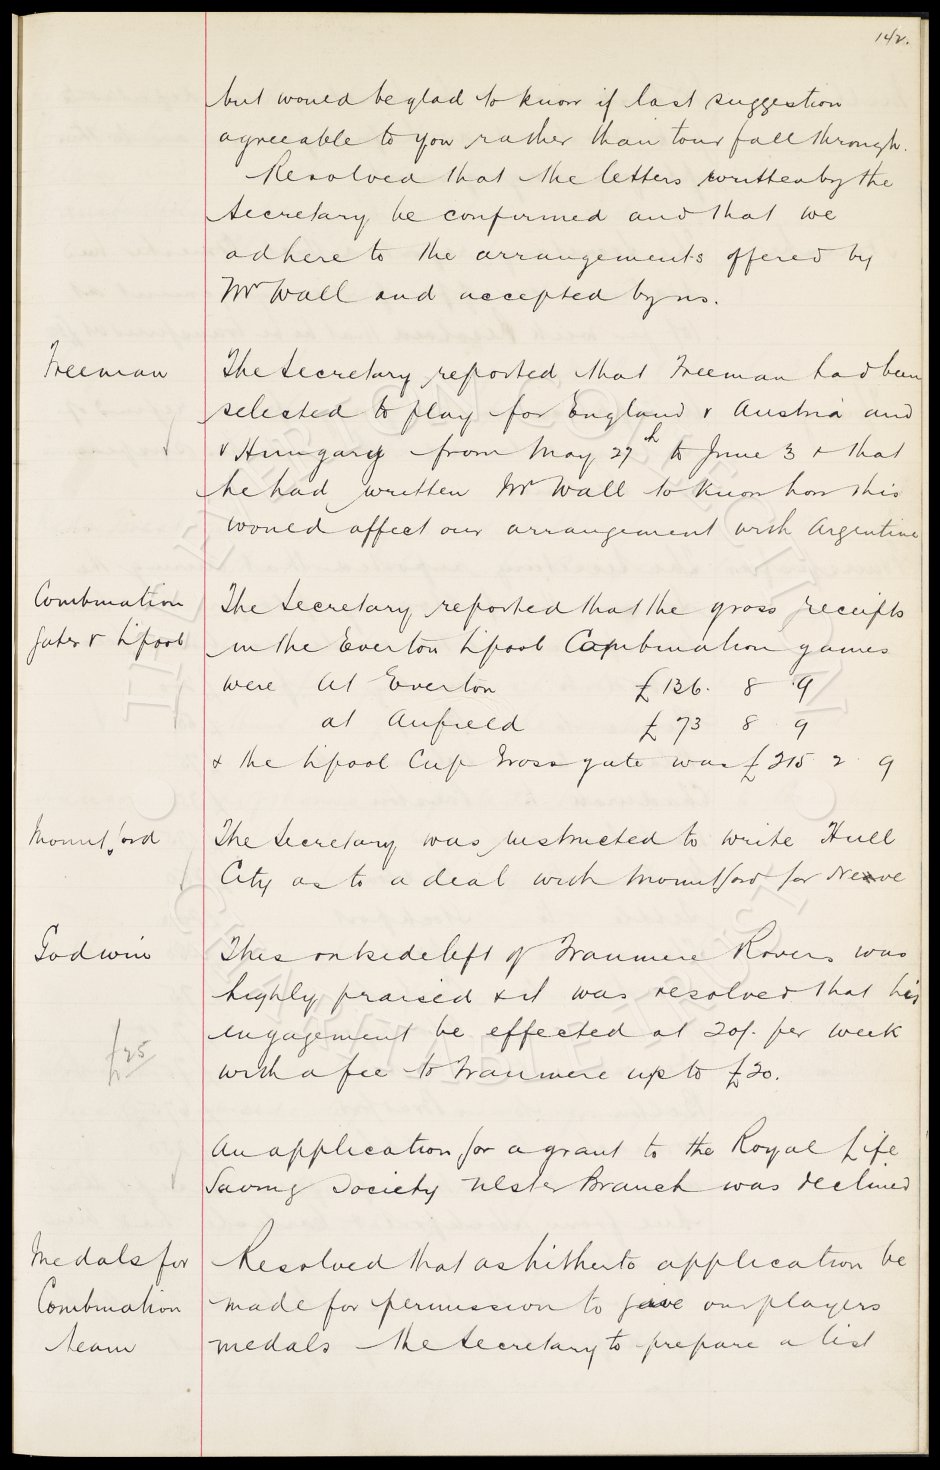 142.
but would be glad to know if last suggestion
agreeable to you rather than tour fall through.
Resolved that the letters written by the
Secretary be confirmed and that we
adhere to the arrangements offered by
Mr Wall and accepted by us.
Freeman
The Secretary reported that Freeman had been
selected to play for England v Austria and
v Hungary from May 27th to June 3 & that
he had written Mr Wall to know how this
would affect our arrangement with Argentine
Combination
gates v L'pool
The Secretary reported that the gross receipts
in the Everton L'pool Combination games
were At Everton £136. 8 9
at Anfield £73 8 9
& the L'pool Cup Gross gate was £215 2 9
Mountford
The Secretary was instructed to write Hull
City as to a deal with Mountford for Neve
Godwin
This outside left of Tranmere Rovers was
highly praised & it was resolved that his
engagement be effected at 20/. per week
£25
with a fee to Tranmere up to £20.
An application for a grant to the Royal Life
Saving Society Ulster Branch was declined
Medals for
Combination
team
Resolved that as hitherto application be
made for permission to give our players
medals the Secretary to prepare a list